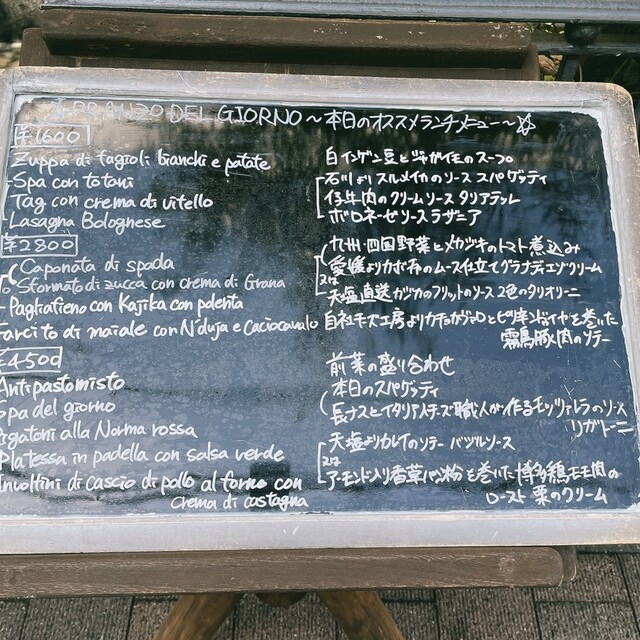 PRANZO DEL GIORNO ~本日のオススメランチメニュー~☆
¥1600
Zuppa di fagioli bianchi e patate 白インゲン豆とジャガイモのスープ
Spa con totani 石川よりスルメイカのソース スパゲッティ
Tag con crema di vitello 仔牛肉のクリームソース タリアテッレ
Lasagna Bolognese ボロネーゼソース ラザニア
¥2800
Caponata di spada 九州・四国野菜とメカヅキのトマト煮込み
Sformato di zucca con crema di Grana 愛媛よりカボチャのムース仕立て グラナ クリーム
又は
Pagliafieno con Kajika con polenta 天塩直送カジカのフリットのソース 2色のタリオリーニ
Farcito di maiale con N'duja e Caciocavalo 自社チーズ工房よりカチョカヴァロと を巻いた
霧島豚肉のソテー
¥4500
Antipastomisto 前菜の盛り合わせ
Spa del giorno 本日のスパゲッティ
Rigatoni alla Norma rossa 長ナスとイタリア人チーズ職人が作るモッツァレラのソース
リガトーニ
Platessa in padella con salsa verde 天塩よりカレイのソテー バジルソース
又は
Involtini di cascio di pollo al forno con アーモンド入り香草パン粉を巻いた博多鶏モモ肉の
crema di castagna ロースト 栗のクリーム